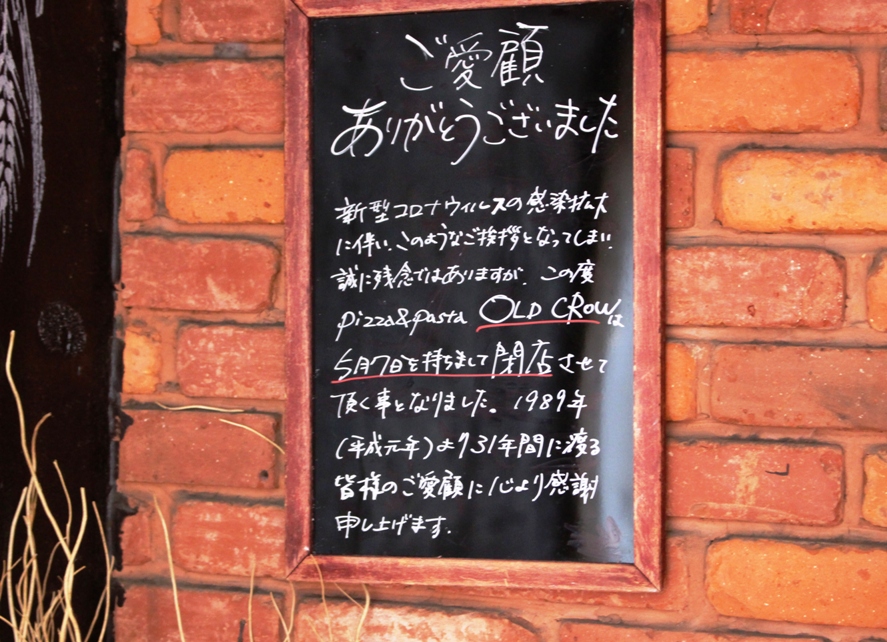 ご愛顧
ありがとうございました
新型コロナウィルスの感染拡大
に伴い、このようなご挨拶となってしまい
誠に残念ではありますが、この度
pizza&pasta OLD CROWは
5月7日を持ちまして閉店させて
頂く事となりました。1989年
(平成元年)より31年間に渡る
皆様のご愛顧に心より感謝
申し上げます.